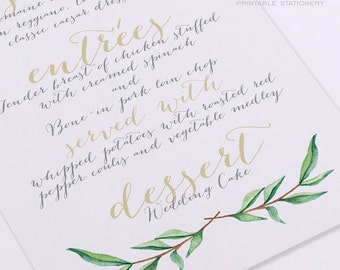 PRINTABLE STATIONERY
romaine
n reggiano,
classic caesar dress
entrées
Tender breast of chicken stuffed
with creamed spinach
and
Bone-in pork loin chop
served with
whipped potatoes with roasted red
pepper coulis and vegetable medley
dessert
Wedding Cake